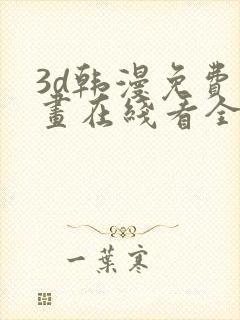 3d韩漫免费
画在线看全
一葉寒